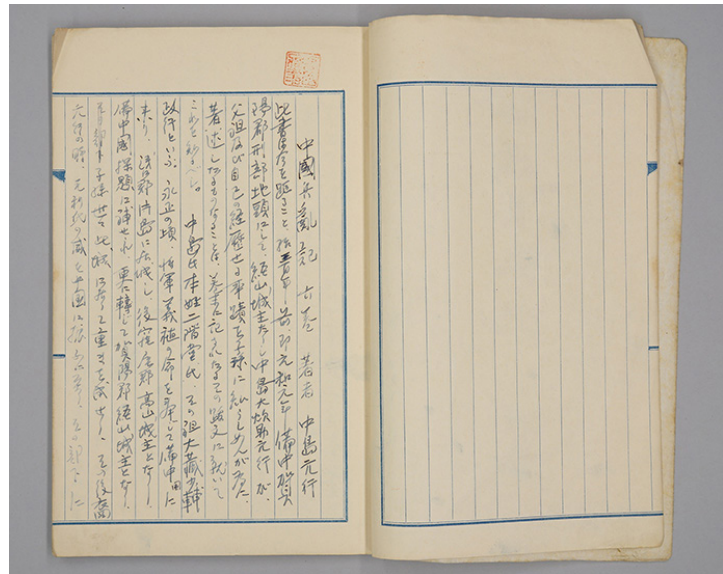 中國兵亂記 六巻 著者 中島元行
此書は今を距ること 拾三百年前 即元和元年 備中賀
陽郡刑部地頭にして経山城主たりし中島大炊助元行が、
父祖及び自己の経歴せる事蹟を子孫に知らしめんが為に、
著述したるものなることは、巻末に記されたるその跋文に就いて
これを知るべし。 中島氏本姓二階堂氏、その祖大蔵少輔
政行といふ。永正の頃、将軍義植の命を奉じて備中国に
来り、浅口郡片島に居城し、後窪屋郡高山城主となり、
備中国探題に補せられ、更に転じて賀陽郡経山城主となり、
子孫世々此城に居りて重きをなせり、その後裔
六代の時、毛利氏の威を中国に振ふに至り、その部下に